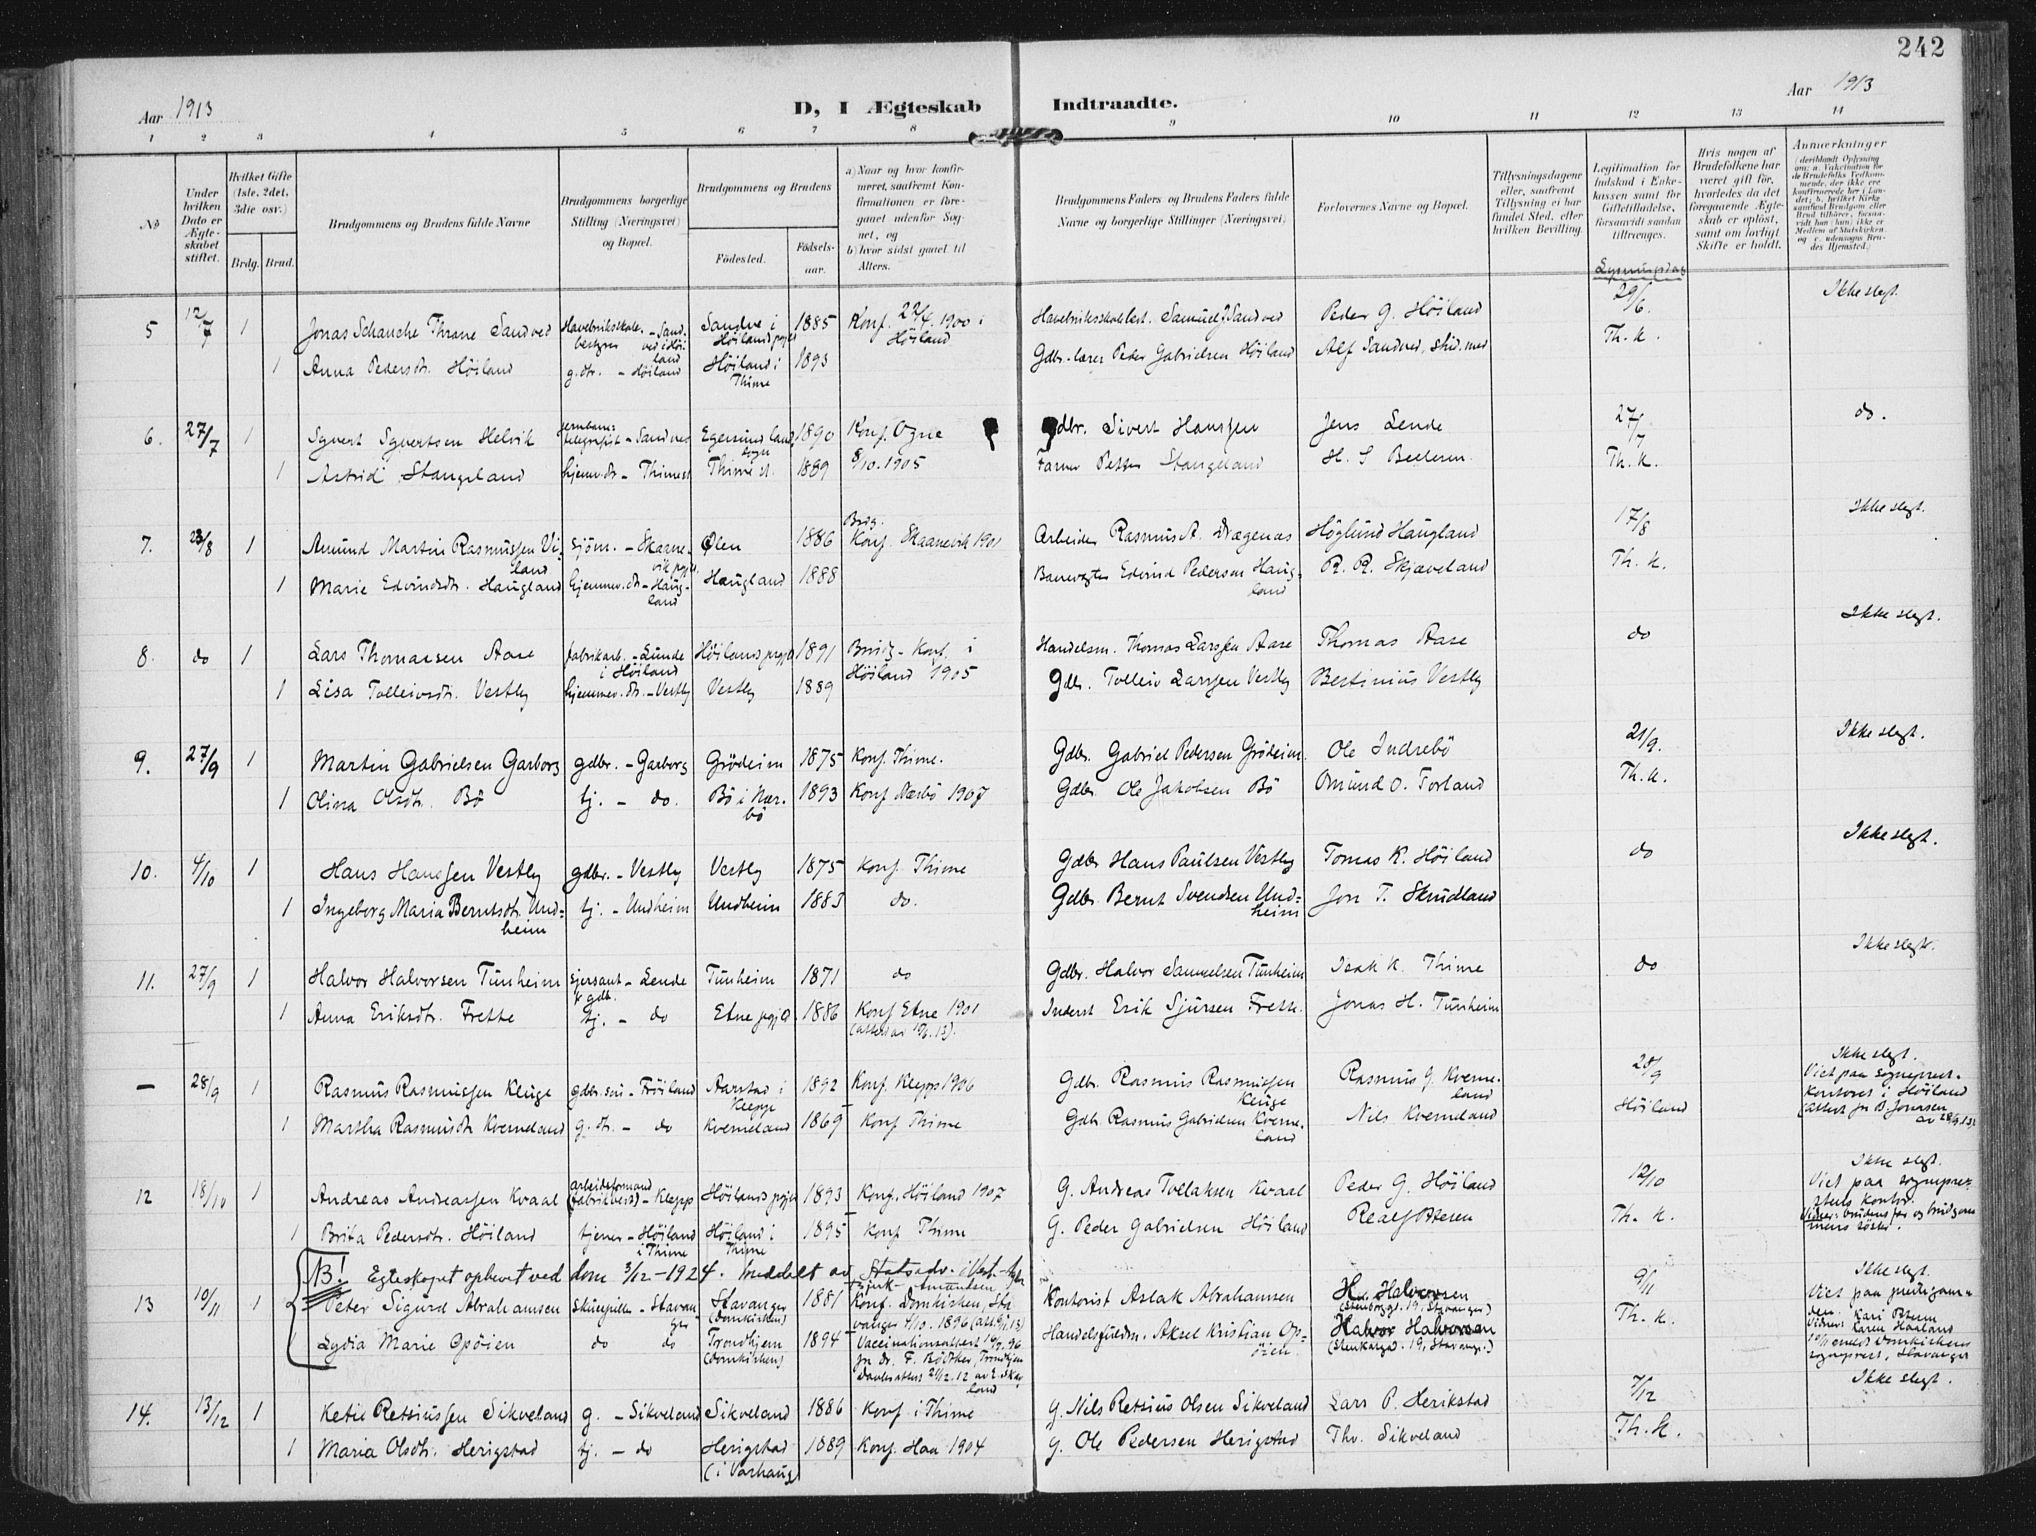 242
Aar 1913
D, I Ægteskab Indtraadte.
Aar 1913
1 2 3 4 5 6 7 8 9 10 11 12 13 14
No
Under hvilken Dato er Ægteskabet stiftet.
Hvilket Gifte (1ste, 2det, 3die osv.)
Brdg. Brud.
Brudgommens og Brudens fulde Navne
Brudgommens borgerlige Stilling (Næringsvei) og Bopæl.
Brudgommens og Brudens
Fødested.
Fødselsaar.
a) Naar og hvor konfirmeret, saafremt Konfirmationen er foregaaet udenfor Sognet, og
b) hvor sidst gaaet til Alters.
Brudgommens Faders og Brudens Faders fulde Navne og borgerlige Stillinger (Næringsvei)
Forlovernes Navne og Bopæl.
Tillysningsdagene eller, saafremt Tillysning ei har fundet Sted, efter hvilken Bevilling.
Legitimation for Indskud i Enkekassen samt for Giftetilladelse, forsaavidt saadan tiltrænges.
Hvis nogen af Brudefolkene har været gift før, hvorledes da det foregaaende Ægteskab er opløst, samt om lovligt Skifte er holdt.
Anmerkninger (deriblandt Oplysning om: a. Vakcination for de Brudefolks Vedkommende, der ikke ere konfirmerede her i Landet; b. hvilket Kirkesamfund Brudgom eller Brud tilhører, forsaavidt han (hun) ikke er Medlem af Statskirken, og c. udensogns Brudes Hjemsted.)
Lysningsdag
5 12/7 1 Jonas Schanche Thrane Sandved Havebruksskolebestyrer - Sandved i Höiland Sandve i Höiland pgjd 1885 Konf. 22/4 1900 i Höiland Samuel J Sandved Peder G. Höiland 29/6. Ikke slegt.
1 Anna Pedersdtr. Höiland g.dtr. - Höiland Höiland i Thime 1893 Gdbr.-lærer Peder Gabrielsen Höiland Alf Sandved, stud. med Th. k.
6. 27/7 1 Syvert Syvertsen Helvik jernbanetelegrafist - Sandnes Egersund lands sogn 1890 Konf. Ogne Gdbr. Sivert Hanssen Jens Lende 27/7 do.
1 Astrid Stangeland hjemv.dtr - Thime st Thime st. 1889 8/10.1905 Farmer Petter Stangeland H. S. Th. k.
7. 23/8 1 Amund Martin Rasmussen Viland sjöm. - Skaanevik pgjd. Ølen 1886 Brdg. Konf. Skaanevik 1901 Arbeider Rasmus A. Drægenæs Höglund Haugland 17/8 Ikke slegt.
1 Marie Edvindsdtr. Haugland hjemmev.dtr - Haugland Haugland 1888 Banevogter Edvind Pedersen Haugland R. R. Skjæveland Th. k.
8. do 1 Lars Thomassen Aase fabrikarb. - Lunde i Höiland Höilands prgjd 1891 Brudg. Konf. i Höiland 1905 Handelsm. Thomas Larssen Aase Thomas Aase do Ikke slegt.
1 Lisa Tolleivsdtr. Vestly hjemmev. dtr. - Vestly Vestly 1889 Gdbr. Tolleiv Larssen Vestly Bertinius Vestly
9. 27/9 1 Martin Gabrielsen Garborg gdbr. - Garborg Grödeim 1875 Konf. Thime. Gdbr. Gabriel Pedersen Grödeim. Ole Indrebö 21/9. Ikke slegt.
1 Olina Olsdtr. Bö tj. - do. Bö i Nærbö 1893 Konf Nærbö 1907 Gdbr. Ole Jakobsen Bö Omund O. Torland Th. k.
10. 4/10 1 Hans Hanssen Vestly gdbr. - Vestly Vestly 1875 Konf. Thime Gdbr. Hans Paulsen Vestly Tomas K. Höiland do Ikke slegt.
1 Ingeborg Maria Berntsdtr. Undheim tj. - Undheim Undheim 1883 do. Gdbr. Bernt Svendsen Undheim Jon T. Skrudland
11. 27/9 1 Halvor Halvorsen Tunheim sjersant & gdb. - Lende Tunheim 1871 do Gdbr. Halvor Samuelsen Tunheim Isak K. Thime do Ikke slegt.
1 Anna Eriksdtr. Frette tj. - do Etne pgjd. 1886 Konf Etne 1901 Inderst Erik Sjursen Frette. Jonas H. Tunheim
— 28/9 1 Rasmus Rasmussen Kluge gdbr. sön - Fröiland Aarstad i Klepp 1892 Konf. Klepp 1906 Gdbr. Rasmus Rasmussen Kluge Rasmus G. Kverneland 28/9 Ikke slegt. Viet paa sogneprest-kontoret i Höiland (attest fr B. Jonassen av 28/9.13)
1 Martha Rasmusdtr Kverneland g. dtr. - do Kverneland 1869 Konf Thime Gdbr Rasmus Gabrielsen Kverneland Nils Kverneland Höiland
12 18/10 1 Andreas Andreassen Kvaal arbeidsformand (fabrikbest) - Klepp Höilands pgjd 1893 Konf. Höiland 1907 G. Andreas Kvaal Peder G. Höiland 12/10 Ikke slegt. Viet paa sogneprestens kontor. Vidner: brudens far og brudgommens söster.
1 Brita Pedersdtr. Höiland tjener - Höiland i Thime Höiland i Thime 1895 Konf Thime G. Peder Gabrielsen Höiland Th. k.
NB! Egteskapet ophevet ved dom 3/12-1924. Meddelt av Statsadv.
13 10/11 1 Peter Sigurd Abrahamsen Stavanger Stavanger (Domkirken) 1881 Konf. Domkirken, Stavanger 4/10. 1896 Kontorist Aslak Abrahamsen H. Halvorsen (Stenkargt. 19, Stavanger) 9/11 Ikke slegt. Viet paa
1 Lydia Marie Opöien do do Trondhjem (Domkirken) 1894 Vaccinationsattest Handelsfuldm. Aksel Kristian Opöien. Halvor Halvorsen (Stenkargt. 19, Stavanger) Th. k. Vidner: Karen Haaland
14. 13/12 1 Ketil Retsiussen Sikveland g. - Sikveland Sikveland 1886 Konf. i Thime G. Nils Retsius Olsen Sikveland Lars P. Herikstad 7/12 Ikke slegt.
1 Maria Olsdtr. Herigstad tj. - do Herigstad (i Varhaug) 1889 Konf. Haa 1904 G. Ole Pedersen Herigstad Thv. Sikveland Th. k.